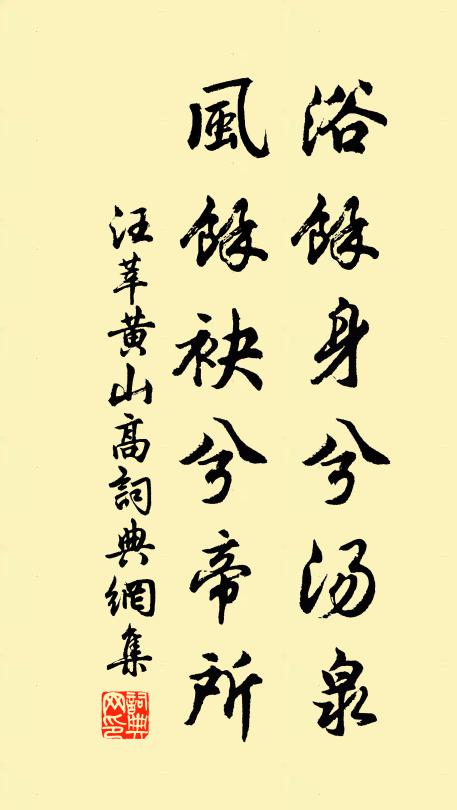 浴餘身兮汤泉
風餘袂兮帝所
汪莘黄山高詞典網集
詞典網印